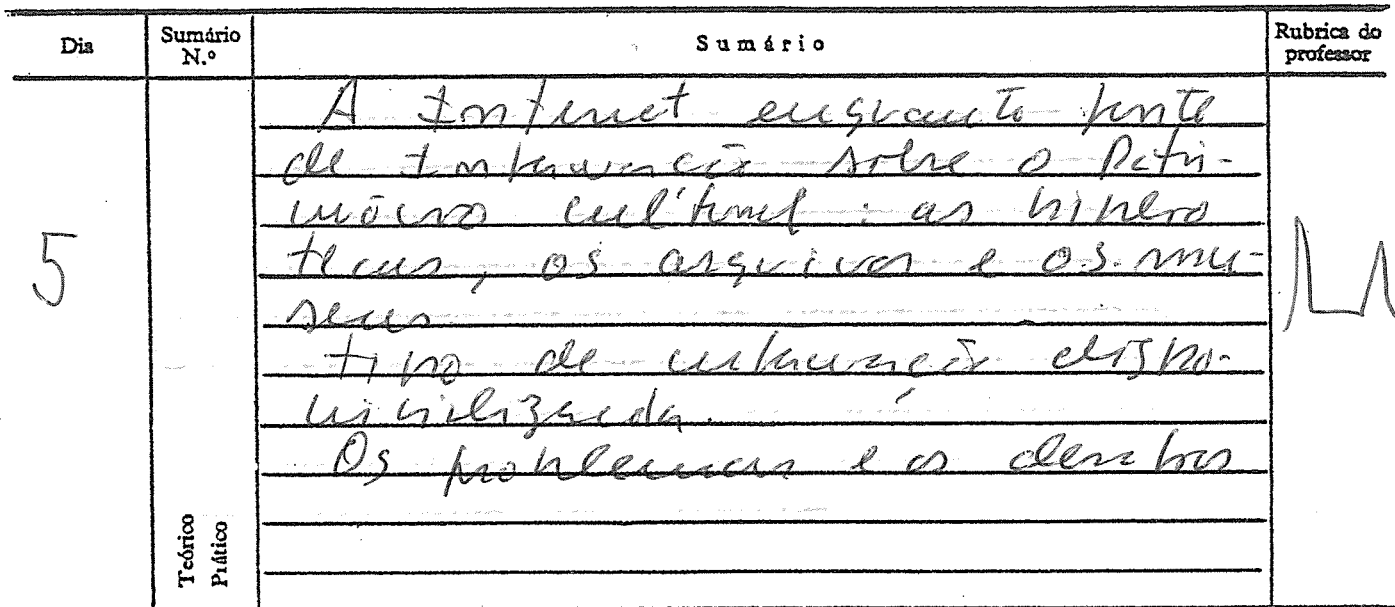 Dia Sumário N.º Sumário Rubrica do professor
A Internet enquanto fonte
de Informação sobre o Patri-
mónio cultural: as biblio
tecas, os arquivos e os mu-
5
seus
tipo de informação dispo-
nibilizada.
Os problemas e os desafios
Teórico
Prático